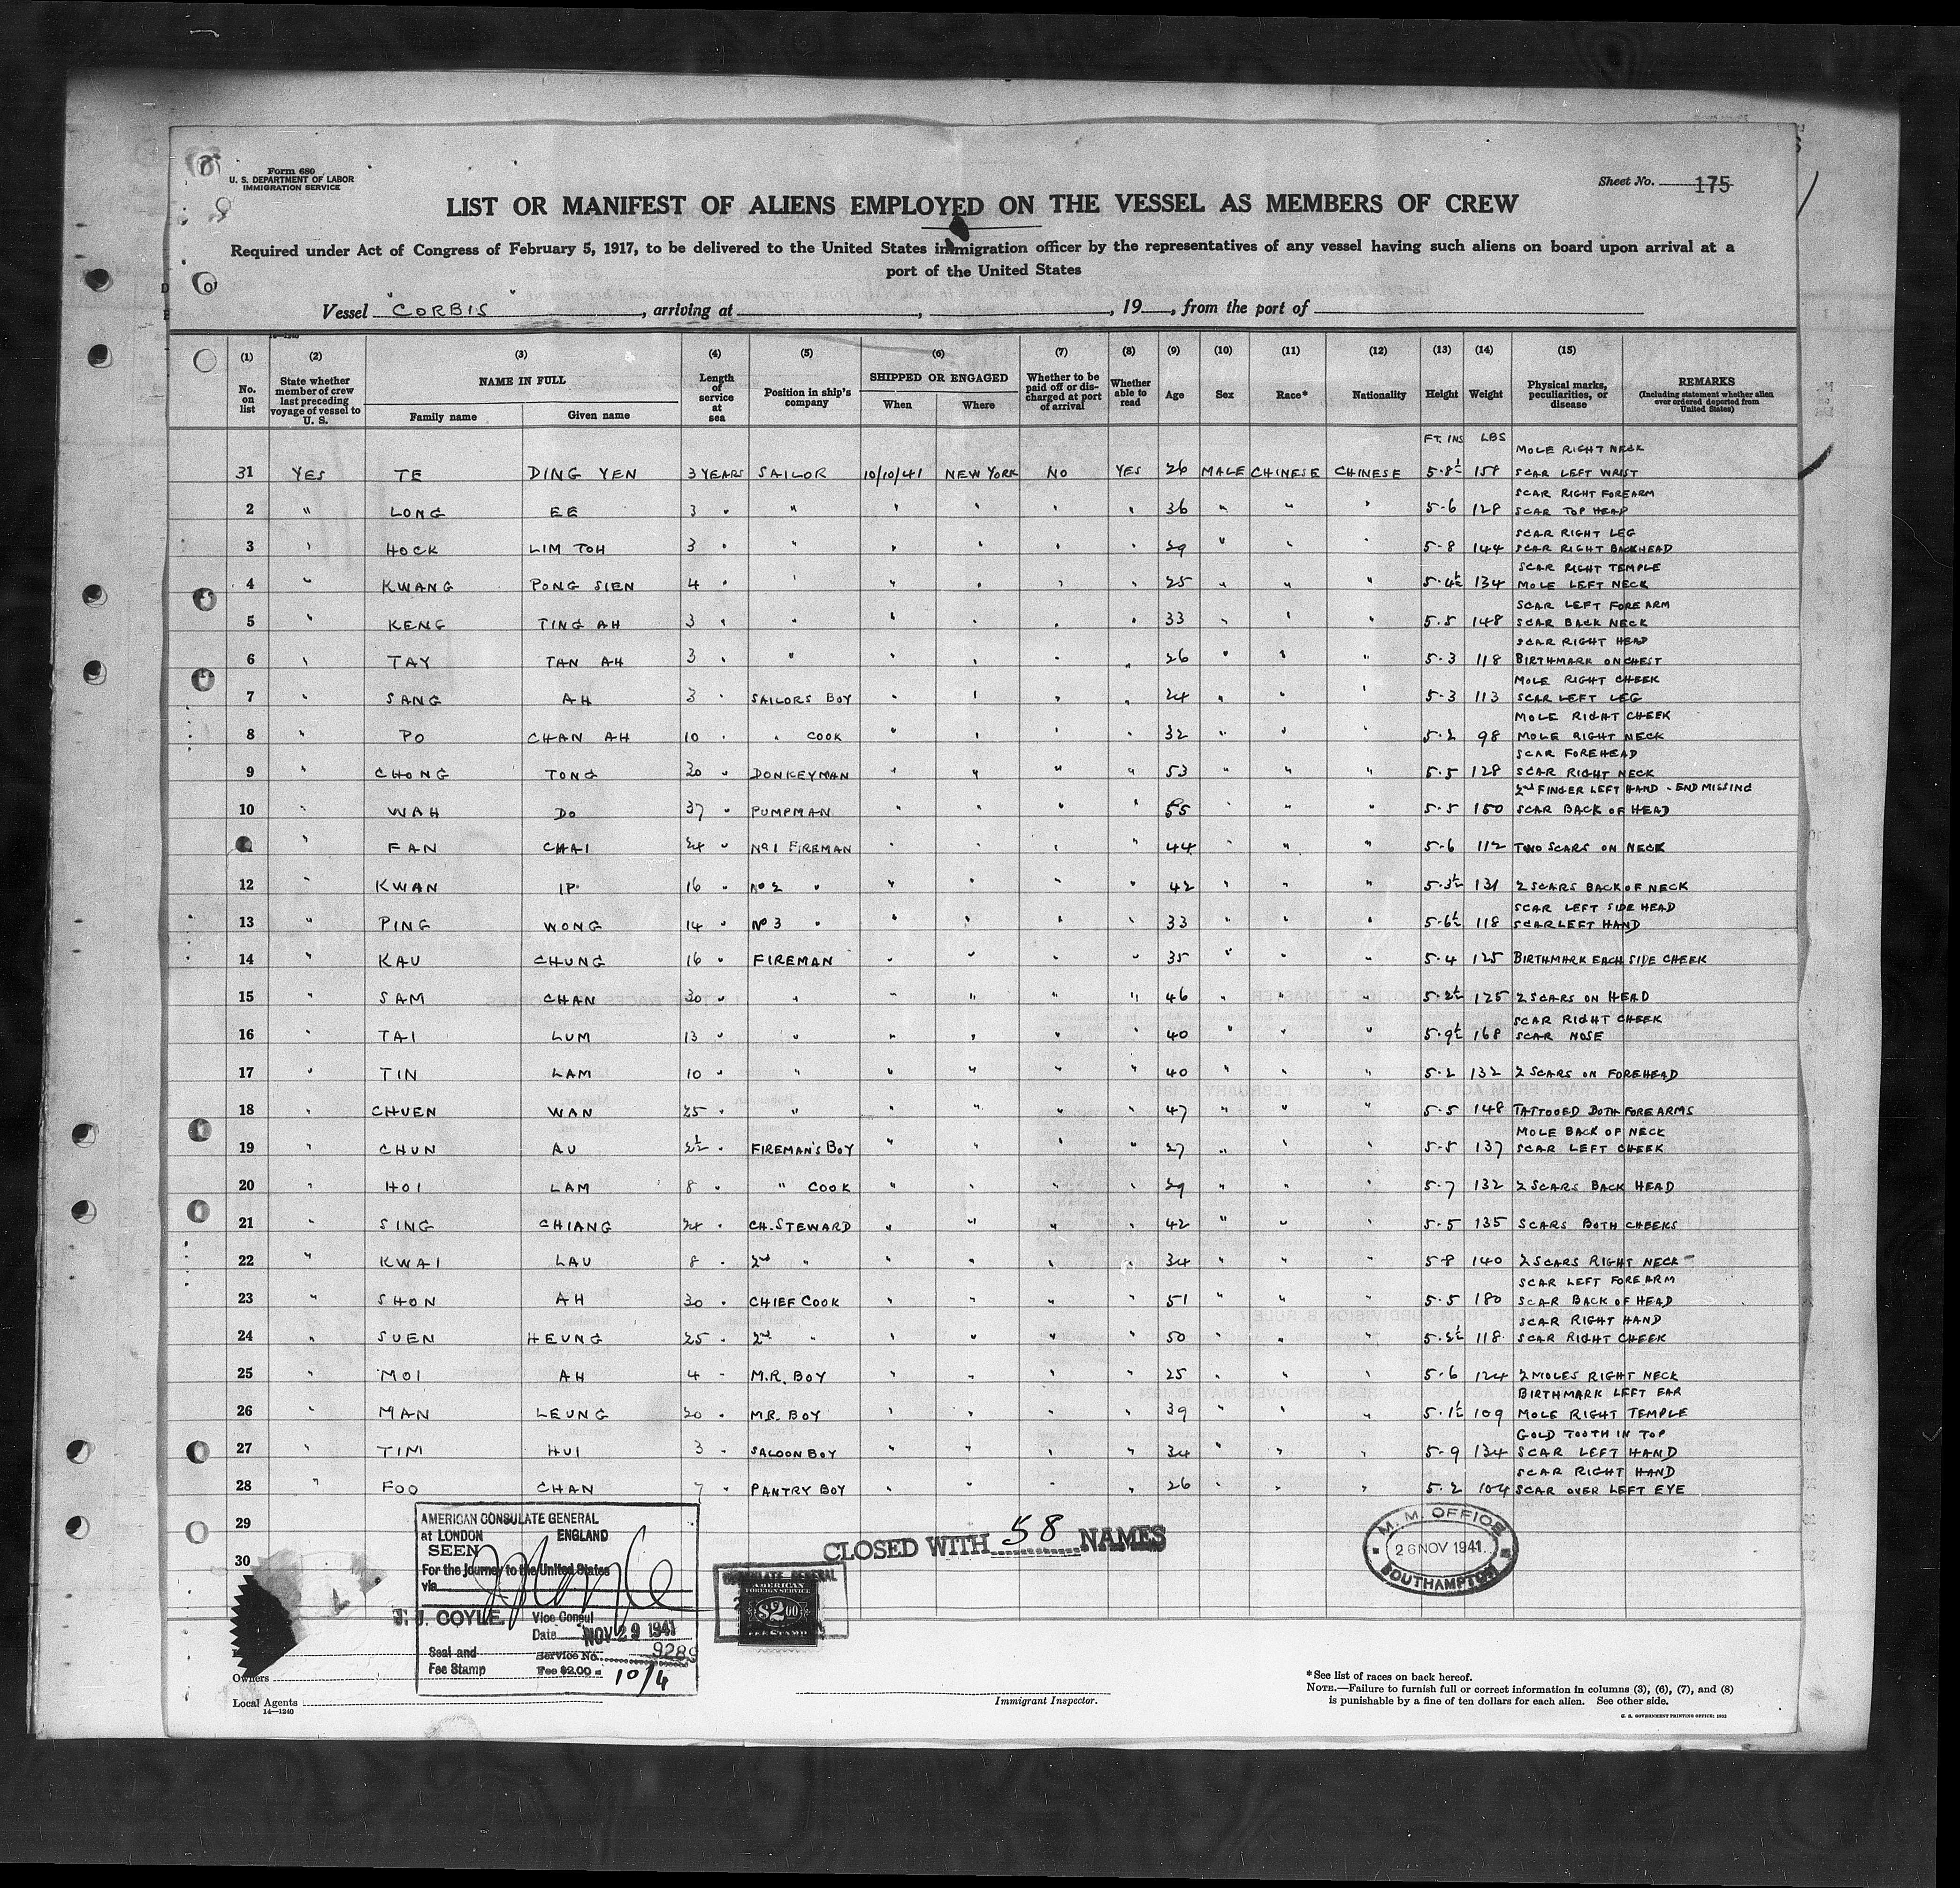 Form 680
U. S. DEPARTMENT OF LABOR
IMMIGRATION SERVICE
Sheet No. 175
LIST OR MANIFEST OF ALIENS EMPLOYED ON THE VESSEL AS MEMBERS OF CREW
Required under Act of Congress of February 5, 1917, to be delivered to the United States immigration officer by the representatives of any vessel having such aliens on board upon arrival at a
port of the United States
Vessel "CORBIS", arriving at , , 19 , from the port of
(1) No. on list (2) State whether member of crew last preceding voyage of vessel to U. S. (3) NAME IN FULL Family name Given name (4) Length of service at sea (5) Position in ship's company (6) SHIPPED OR ENGAGED When Where (7) Whether to be paid off or discharged at port of arrival (8) Whether able to read (9) Age (10) Sex (11) Race* (12) Nationality (13) Height (14) Weight (15) Physical marks, peculiarities, or disease REMARKS (Including statement whether alien ever ordered deported from United States)
FT. INS LBS
31 YES TE DING YEN 3 YEARS SAILOR 10/10/41 NEW YORK NO YES 26 MALE CHINESE CHINESE 5-8½ 158 MOLE RIGHT NECK SCAR LEFT WRIST
2 " LONG EE 3 " " " " " " 36 " " " 5-6 128 SCAR RIGHT FOREARM SCAR TOP HEAD
3 " HOCK LIM TOH 3 " " " " " " 29 " " " 5-8 144 SCAR RIGHT LEG SCAR RIGHT BACKHEAD
4 " KWANG PONG SIEN 4 " " " " " " 25 " " " 5-4½ 134 SCAR RIGHT TEMPLE MOLE LEFT NECK
5 " KENG TING AH 3 " " " " " " 33 " " " 5-5 148 SCAR LEFT FOREARM SCAR BACK NECK
6 " TAY TAN AH 3 " " " " " " 26 " " " 5-3 118 SCAR RIGHT HEAD BIRTHMARK ON CHEST
7 " SANG AH 3 " SAILORS BOY " " " " 24 " " " 5-3 113 MOLE RIGHT CHEEK SCAR LEFT LEG
8 " PO CHAN AH 10 " " COOK " " " " 32 " " " 5-2 98 MOLE RIGHT CHEEK MOLE RIGHT NECK
9 " CHONG TONG 30 " DONKEYMAN " " " " 53 " " " 5-5 128 SCAR FOREHEAD SCAR RIGHT NECK
10 " WAH DO 37 " PUMPMAN " " " " 55 " " " 5-5 150 2nd FINGER LEFT HAND - END MISSING SCAR BACK OF HEAD
" FAN CHAI 24 " No 1 FIREMAN " " " " 44 " " " 5-6 112 TWO SCARS ON NECK
12 " KWAN IP 16 " No 2 " " " " " 42 " " " 5-3½ 131 2 SCARS BACK OF NECK
13 " PING WONG 14 " No 3 " " " " " 33 " " " 5-6½ 118 SCAR LEFT SIDE HEAD SCAR LEFT HAND
14 " KAU CHUNG 16 " FIREMAN " " " " 35 " " " 5-4 125 BIRTHMARK EACH SIDE CHEEK
15 " SAM CHAN 30 " " " " " " 46 " " " 5-2½ 125 2 SCARS ON HEAD
16 " TAI LUM 13 " " " " " " 40 " " " 5-9½ 168 SCAR RIGHT CHEEK SCAR NOSE
17 " TIN LAM 10 " " " " " " 40 " " " 5-2 132 2 SCARS ON FOREHEAD
18 " CHUEN WAN 25 " " " " " " 47 " " " 5-5 148 TATTOOED BOTH FOREARMS
19 " CHUN AU 2½ " FIREMAN'S BOY " " " " 27 " " " 5-5 137 MOLE BACK OF NECK SCAR LEFT CHEEK
20 " HOI LAM 8 " " COOK " " " " 29 " " " 5-7 132 2 SCARS BACK HEAD
21 " SING CHIANG 24 " CH. STEWARD " " " " 42 " " " 5-5 135 SCARS BOTH CHEEKS
22 " KWAI LAU 8 " 2nd " " " " " 34 " " " 5-8 140 2 SCARS RIGHT NECK
23 " SHON AH 30 " CHIEF COOK " " " " 51 " " " 5-5 180 SCAR LEFT FOREARM SCAR BACK OF HEAD
24 " SUEN HEUNG 25 " 2nd " " " " " 50 " " " 5-2½ 118 SCAR RIGHT HAND SCAR RIGHT CHEEK
25 " MOI AH 4 " M.R. BOY " " " " 25 " " " 5-6 124 2 MOLES RIGHT NECK
26 " MAN LEUNG 20 " M.R. BOY " " " " 39 " " " 5-1½ 109 BIRTHMARK LEFT EAR MOLE RIGHT TEMPLE
27 " TIM HUI 3 " SALOON BOY " " " " 34 " " " 5-9 134 GOLD TOOTH IN TOP SCAR LEFT HAND
28 " FOO CHAN 7 " PANTRY BOY " " " " 26 " " " 5-2 104 SCAR RIGHT HAND SCAR OVER LEFT EYE
29
30
CLOSED WITH 58 NAMES
M. M. OFFICE
26 NOV 1941
SOUTHAMPTON
AMERICAN CONSULATE GENERAL
at LONDON ENGLAND
SEEN
For the journey to the United States
via
J. J. COYLE. Vice Consul
Date NOV 29 1941
Seal and Service No. 9289
Fee Stamp Fee $2.00 = 10/4
CONSULATE GENERAL
AMERICAN
FOREIGN SERVICE
$2.00
FEE STAMP
Owners
Local Agents
14—1240
Immigrant Inspector.
*See list of races on back hereof.
NOTE.—Failure to furnish full or correct information in columns (3), (6), (7), and (8)
is punishable by a fine of ten dollars for each alien. See other side.
U. S. GOVERNMENT PRINTING OFFICE: 1932